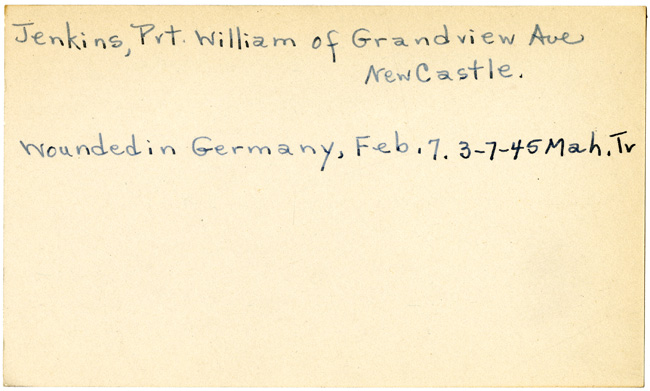 Jenkins, Pvt. William of Grandview Ave
New Castle.
Wounded in Germany, Feb. 7. 3-7-45 Mah. Tr